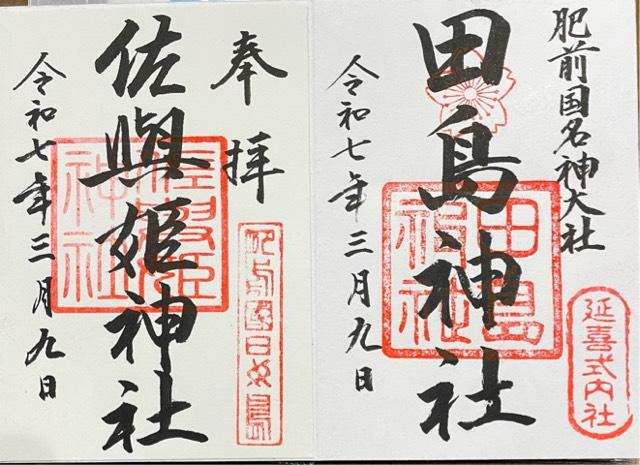 肥前国名神大社
田島神社
令和七年三月九日
田島神社
延喜式内社
奉拝
佐與姫神社
令和七年三月九日
佐與姫神社